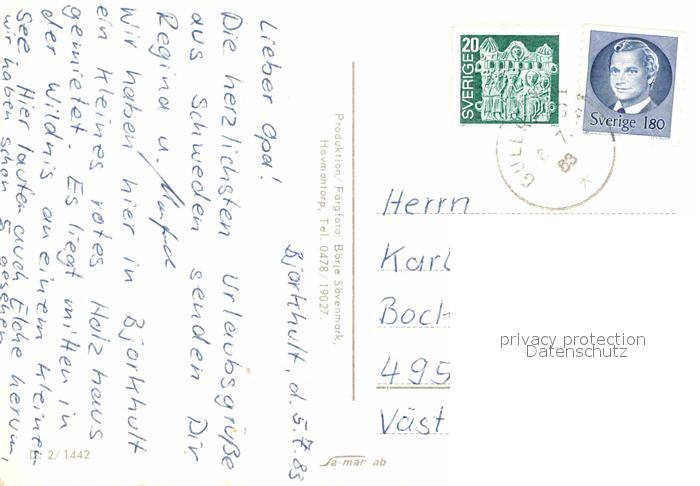 Björkhult, d. 5.7.83
Lieber Opa!
Die herzlichsten Urlaubsgrüße
aus Schweden senden Dir
Regina u. Manfred
Wir haben hier in Björkhult
ein kleines rotes Holzhaus
gemietet. Es liegt mitten in
der Wildnis an einem kleinen
See. Hier laufen auch Elche herum,
wir haben schon 5 gesehen.
D: 2/1442
Produktion/Färgfoto, Börje Sävenmark,
Hovmantorp, Tel. 0478/19027.
Sa-mär ab
SVERIGE 20
Sverige 180
7. 83
Herrn
Karl
Boch
495
Väst
privacy protection
Datenschutz